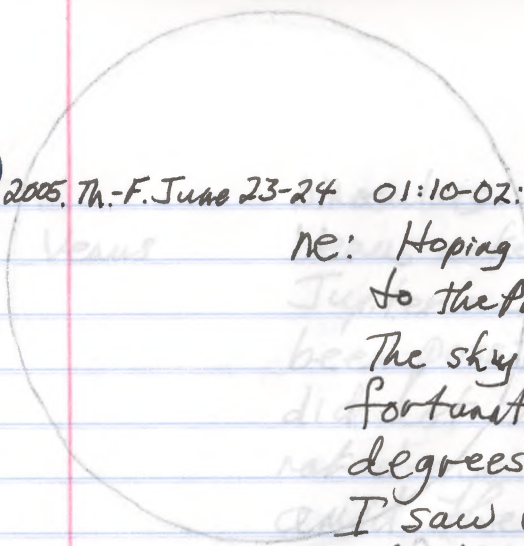 2005, Th.-F. June 23-24 01:10-02:
ne: Hoping
to the P
The sky
fortunat
degrees
I saw